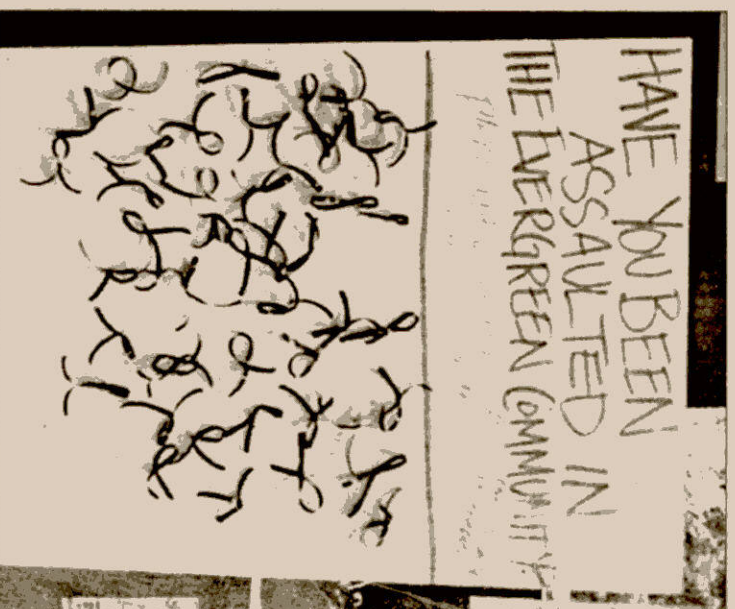 HAVE YOU BEEN
ASSAULTED IN
THE EVERGREEN COMMUNITY